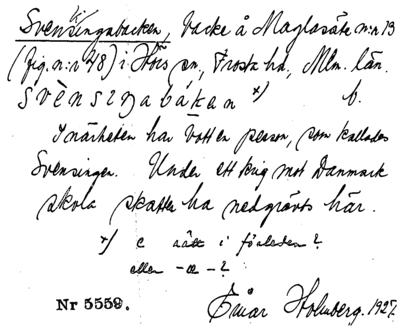 Svensingabacken, backe å Maglasäte n:r 13
(fig. n:r 48) i Hörs sn, Frosta hd, Mlm. län.
svènsiŋabákən x) f.
I närheten har bott en person, som kallades
Svensingen. Under ett krig mot Danmark
skola skatter ha nedgrävts här.
x) e rätt i förleden?
eller -æ-?
Nr 5559. Einar Holmberg. 1927.